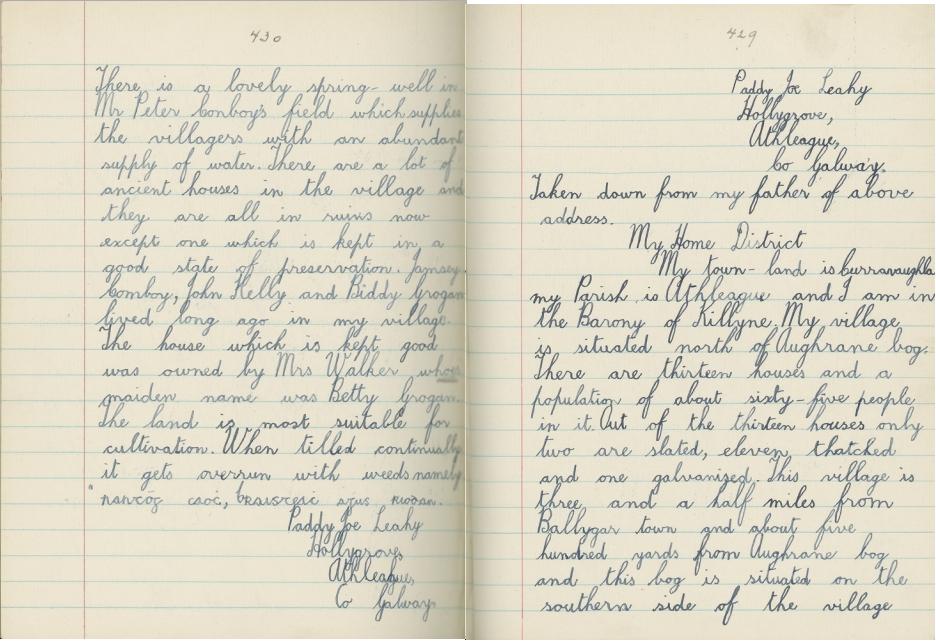 430
There is a lovely spring-well in
Mr Peter Conboy's field which supplies
the villagers with an abundant
supply of water. There are a lot of
ancient houses in the village and
they are all in ruins now
except one which is kept in a
good state of preservation. Jamsey
Comboy, John Kelly and Biddy Grogan
lived long ago in my village.
The house which is kept good
was owned by Mrs Walker whose
maiden name was Betty Grogan.
The land is most suitable for
cultivation. When tilled continually
it gets overrun with weeds namely
caoċ, agus
Paddy Joe Leahy
Hollygrove,
Athleague,
Co Galway.
429
Paddy Joe Leahy
Hollygrove,
Athleague,
Co Galway.
Taken down from my father of above
address.
My Home District
My town-land is
my Parish is Athleague and I am in
the Barony of Killyne. My village
is situated north of Aughrane bog.
There are thirteen houses and a
population of about sixty-five people
in it. Out of the thirteen houses only
two are slated, eleven thatched
and one galvanised. This village is
three and a half miles from
Ballygar town and about five
hundred yards from Aughrane bog
and this bog is situated on the
southern side of the village